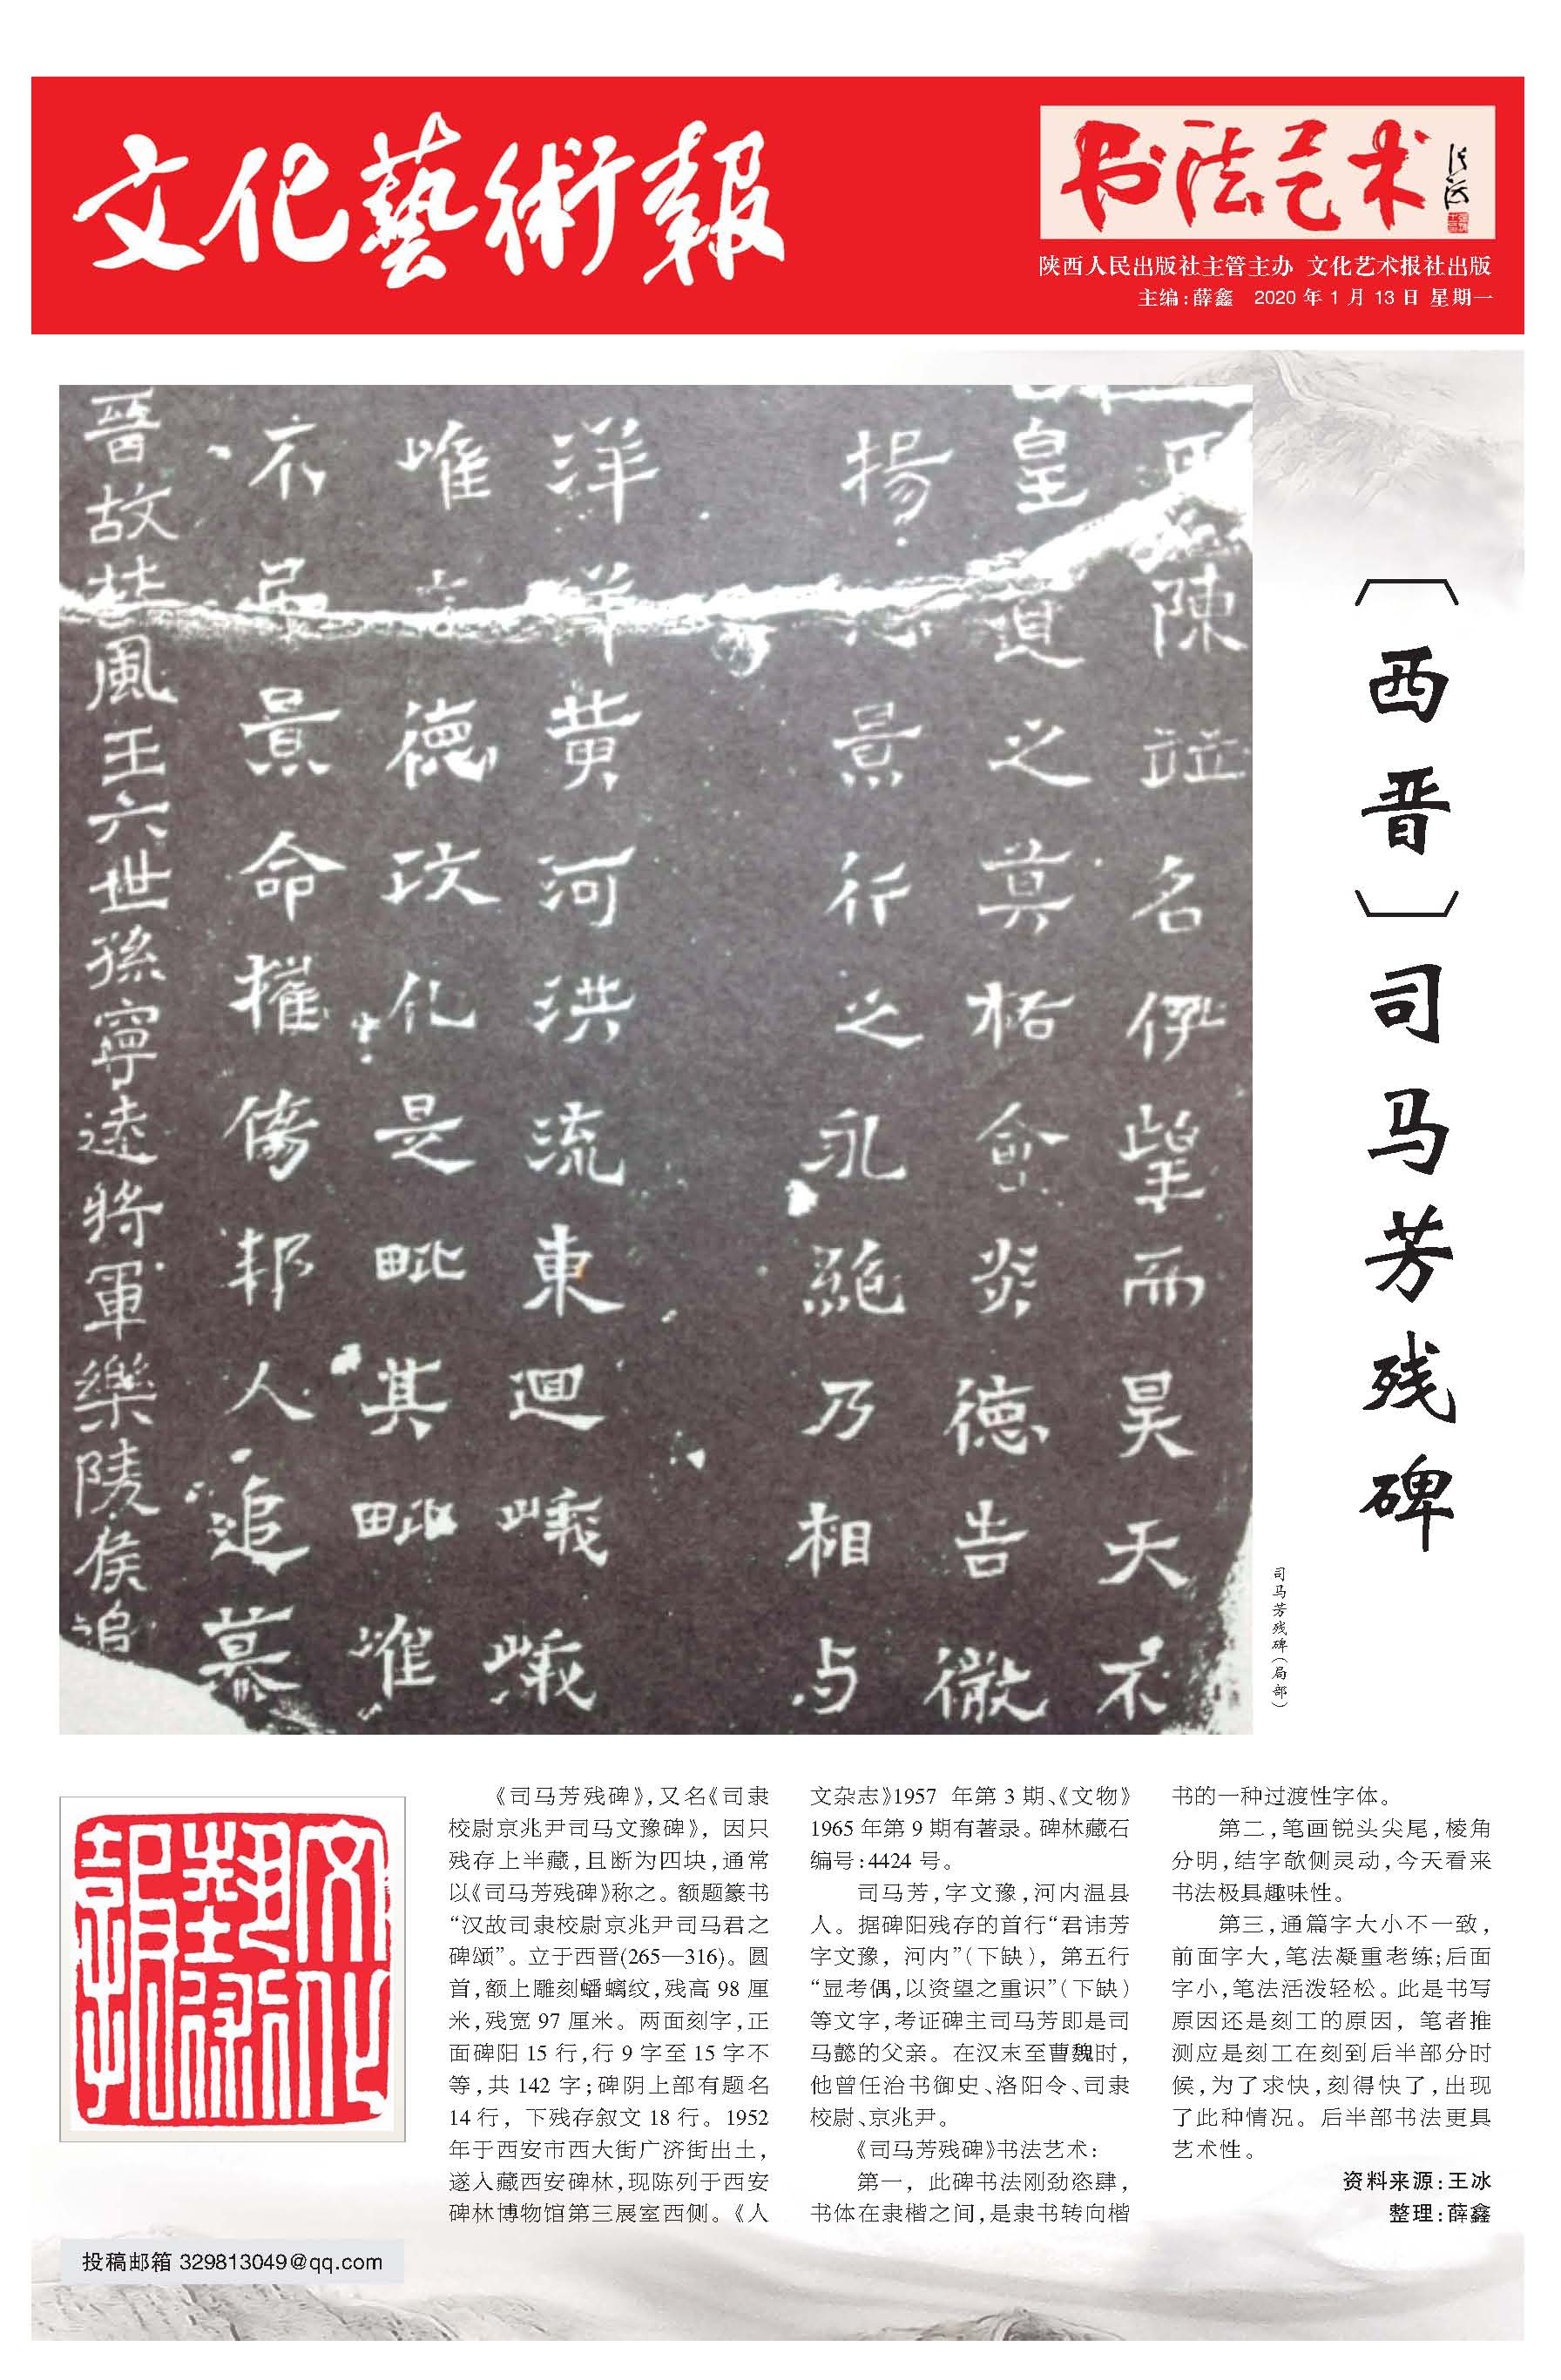 文化藝術報
书法艺术
陕西人民出版社主管主办 文化艺术报社出版
主编:薛鑫 2020 年 1 月 13 日 星期一
陳竝名望而昊天不
皇之德告徽
揚景行之永乃相与
洋洋黃河洪流東迴峨峨
唯德政化是毗其毗
不景命摧傷邦人追慕
晉故扶風王六世孫寧遠將軍樂陵侯追
〔西晋〕司马芳残碑
司马芳残碑(局部)
《司马芳残碑》,又名《司隶
校尉京兆尹司马文豫碑》, 因只
残存上半藏,且断为四块,通常
以《司马芳残碑》称之。额题篆书
“汉故司隶校尉京兆尹司马君之
碑颂”。立于西晋(265—316)。圆
首,额上雕刻蟠螭纹,残高 98 厘
米,残宽 97 厘米。两面刻字,正
面碑阳 15 行,行 9 字至 15 字不
等,共 142 字;碑阴上部有题名
14 行, 下残存叙文 18 行。1952
年于西安市西大街广济街出土,
遂入藏西安碑林,现陈列于西安
碑林博物馆第三展室西侧。《人
文杂志》1957 年第 3 期、《文物》
1965 年第 9 期有著录。碑林藏石
编号:4424 号。
司马芳,字文豫,河内温县
人。据碑阳残存的首行“君讳芳
字文豫, 河内”(下缺), 第五行
“显考儁,以资望之重识”(下缺)
等文字,考证碑主司马芳即是司
马懿的父亲。在汉末至曹魏时,
他曾任治书御史、洛阳令、司隶
校尉、京兆尹。
《司马芳残碑》书法艺术:
第一, 此碑书法刚劲恣肆,
书体在隶楷之间,是隶书转向楷
书的一种过渡性字体。
第二,笔画锐头尖尾,棱角
分明,结字欹侧灵动,今天看来
书法极具趣味性。
第三,通篇字大小不一致,
前面字大,笔法凝重老练;后面
字小,笔法活泼轻松。此是书写
原因还是刻工的原因, 笔者推
测应是刻工在刻到后半部分时
候,为了求快,刻得快了,出现
了此种情况。后半部书法更具
艺术性。
资料来源:王冰
整理:薛鑫
文化藝術報
投稿邮箱 329813049@qq.com